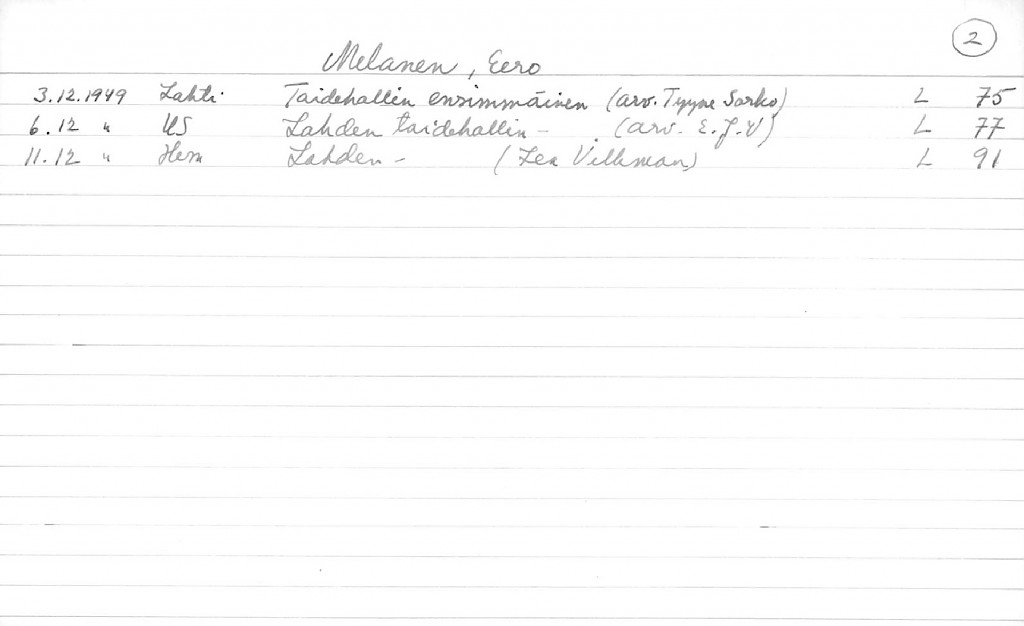 2
Melanen, Eero
3.12.1949 Lahti Taidehallin ensimmäinen (arv. Tyyne Sarko) L 75
6.12 " US Lahden taidehallin - (arv. E.J.V) L 77
11.12 " Hesa Lahden - (Lea Villman) L 91